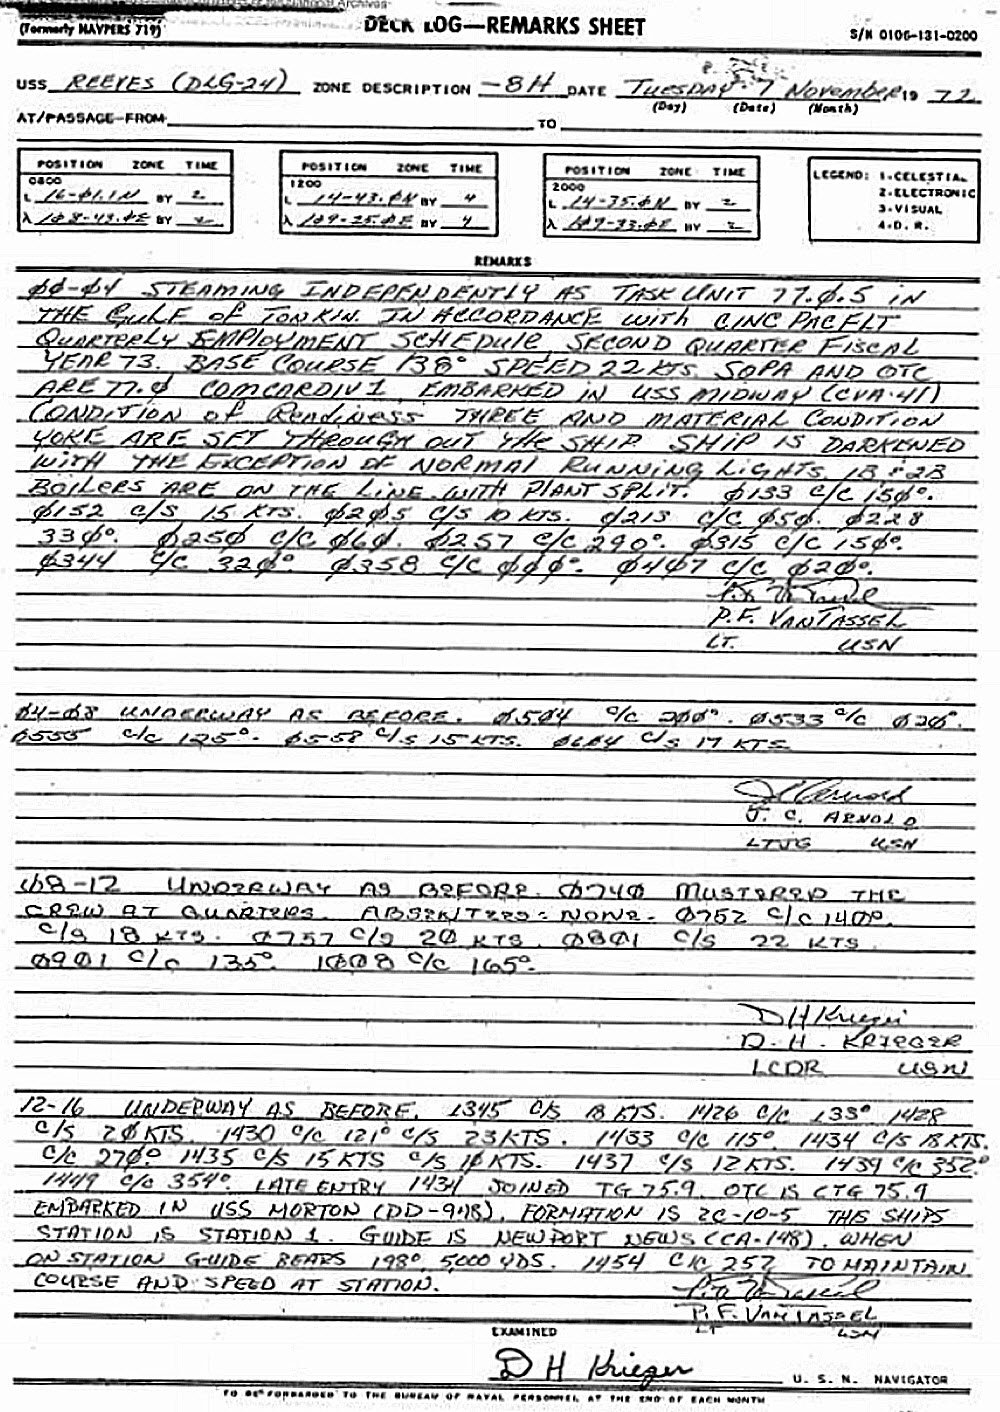 National Archives
(Formerly NAVPERS 719) DECK LOG—REMARKS SHEET S/N 0106-131-0200
USS REEVES (DLG-24) ZONE DESCRIPTION -8H DATE TUESDAY 7 November 19 72
(Day) (Date) (Month)
AT/PASSAGE-FROM TO
POSITION ZONE TIME POSITION ZONE TIME POSITION ZONE TIME LEGEND: 1-CELESTIAL
0800 1200 2000 2-ELECTRONIC
L 16-Ø1.1N BY 2 L 14-43.ØN BY 4 L 14-35.ØN BY 2 3-VISUAL
λ 1Ø8-43.ØE BY 2 λ 1Ø9-25.ØE BY 4 λ 1Ø9-33.ØE BY 2 4-D. R.
REMARKS
ØØ-Ø4 STEAMING INDEPENDENTLY AS TASK UNIT 77.Ø.5 IN
THE GULF of TONKIN. IN ACCORDANCE with CINC PAC FLT
QUARTERLY EMPLOYMENT SCHEDULE, SECOND QUARTER FISCAL
YEAR 73. BASE COURSE 138° SPEED 22 KTS. SOPA AND OTC
ARE 77.Ø COMCARDIV 1 EMBARKED IN USS MIDWAY (CVA-41)
CONDITION of Readiness THREE AND MATERIAL CONDITION
YOKE ARE SET THROUGH OUT the SHIP. SHIP IS DARKENED
WITH THE EXCEPTION OF NORMAL RUNNING LIGHTS. 1B & 2B
BOILERS ARE ON THE LINE WITH PLANT SPLIT. Ø133 C/C 15Ø°.
Ø152 C/S 15 KTS. Ø2Ø5 C/S 10 KTS. Ø213 C/C Ø5Ø. Ø228
33Ø°. Ø25Ø C/C Ø6Ø. Ø257 C/C 290°. Ø315 C/C 15Ø°.
Ø344 C/C 32Ø°. Ø358 C/C ØØØ°. Ø4Ø7 C/C Ø2Ø°.
P.F. VANTASSEL
LT. USN
Ø4-Ø8 UNDERWAY AS BEFORE. Ø5Ø4 C/C 2ØØ°. Ø533 C/C Ø2Ø°.
Ø555 C/C 125°. Ø558 C/S 15 KTS. C/S 17 KTS
J. C. ARNOLD
LTJG USN
Ø8-12 UNDERWAY AS BEFORE. Ø74Ø MUSTERED THE
CREW AT QUARTERS. ABSENTEES: NONE. Ø752 C/C 14Ø°.
C/S 18 KTS. Ø757 C/S 2Ø KTS. Ø8Ø1 C/S 22 KTS.
Ø9Ø1 C/C 135°. 1ØØ8 C/C 165°.
D H Krieger
D. H. KRIEGER
LCDR USN
12-16 UNDERWAY AS BEFORE. 1345 C/S 18 KTS. 1426 C/C 133° 1428
C/S 2Ø KTS. 1430 C/C 121° C/S 23 KTS. 1433 C/C 115°. 1434 C/S 18 KTS.
C/C 27Ø°. 1435 C/S 15 KTS C/S 1Ø KTS. 1437 C/S 12 KTS. 1439 C/C 352°
1449 C/C 354°. LATE ENTRY 1431 JOINED TG 75.9. OTC IS CTG 75.9
EMBARKED IN USS MORTON (DD-948). FORMATION IS 2C-10-5 THIS SHIPS
STATION IS STATION 1. GUIDE IS NEWPORT NEWS (CA-148). WHEN
ON STATION GUIDE BEARS 198°, 5,000 YDS. 1454 C/C 257 TO MAINTAIN
COURSE AND SPEED AT STATION.
P.F. VANTASSEL
LT USN
EXAMINED
D H Krieger
U. S. N. NAVIGATOR
TO BE FORWARDED TO THE BUREAU OF NAVAL PERSONNEL AT THE END OF EACH MONTH